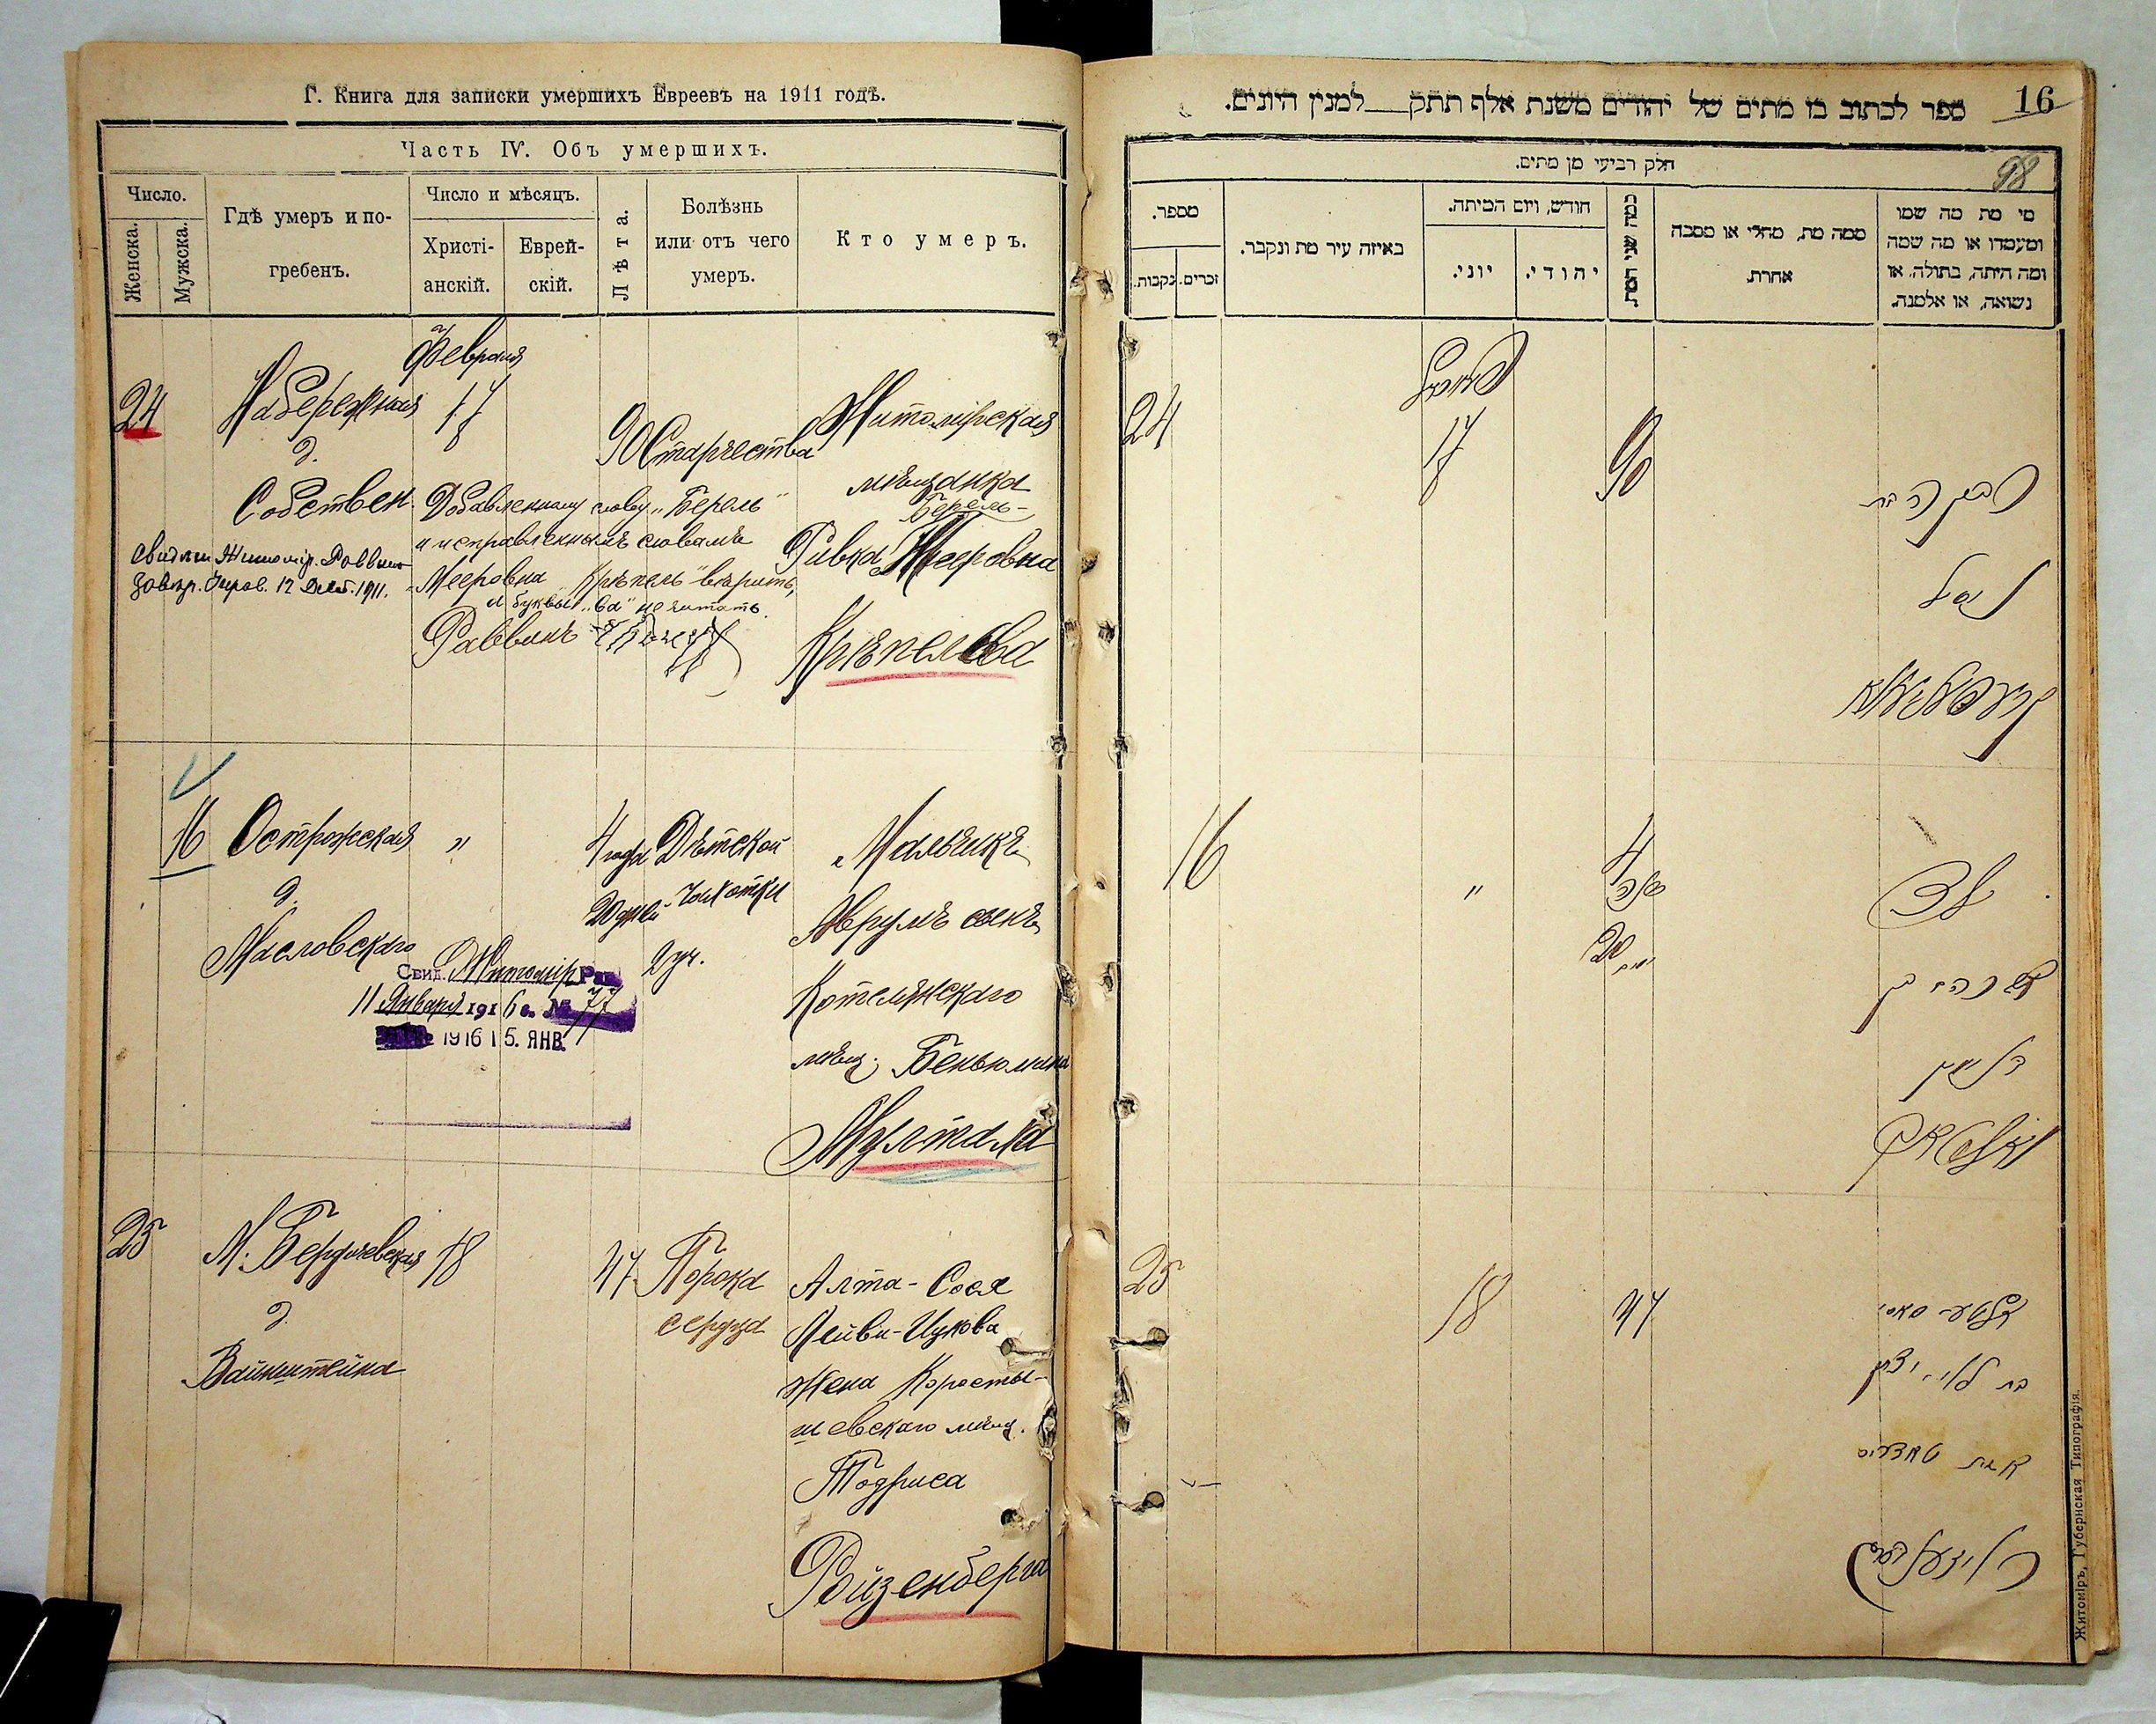 Г. Книга для записки умершихъ Евреевъ на 1911 годъ.
Часть IV. Объ умершихъ.
Число.
Женска.
Мужска.
Гдѣ умеръ и по-
гребенъ.
Число и мѣсяцъ.
Христі-
анскій.
Еврей-
скій.
Лѣта.
Болѣзнь
или отъ чего
умеръ.
Кто умеръ.
Февраля
24
Набережная
д.
Собствен.
17
90
Старчества
Житомірская
мѣщанка
Берель-
Ривка Мееровна
Крѣпелева
Добавленному слову „Берель"
и исправленнымъ словамъ
„Мееровна Крѣпель" вѣрить,
и буквы „ва" не читать.
Раввинъ
Житомір. Раввин
12 1911.
16
Острожская
д.
Масловскаго
"
4 года
20 дней
Дѣтской
чахотки
2 уч.
Мальчикъ
Аврумъ сынъ
Котелянскаго
мѣщ. Беньюмина
Мультана
Свид. Житомір Рав
11 Января 1916 г. № 77
1916 15. ЯНВ.
25
М. Бердичевская
д.
Вайнштейна
18
47
Порока
сердца
Алта-Сося
Лейви-Ицкова
жена Коросты-
шевскаго мѣщ.
Тодриса
Ройзенберга
16
ספר לכתוב בו מתים של יהודים משנת אלף תתק למנין היונים.
98
חלק רביעי מן מתים.
מספר.
זכרים.
נקבות.
באיזה עיר מת ונקבר.
חודש, ויום המיתה.
יוני.
יהודי.
כמה שני המת.
ממה מת, מחלי או מסבה
אחרת.
מי מת מה שמו
ומעמדו או מה שמה
ומה היתה, בתולה או
נשואה, או אלמנה.
24
17
90
רבקה בת
16
"
4
שנה
20
ילד
אברהם בן
בנימין
25
18
47
אלטע סאסי
בת לוי יצחק
אשת טאדרוס
רויזענבערג
Житоміръ, Губернская Типографія.